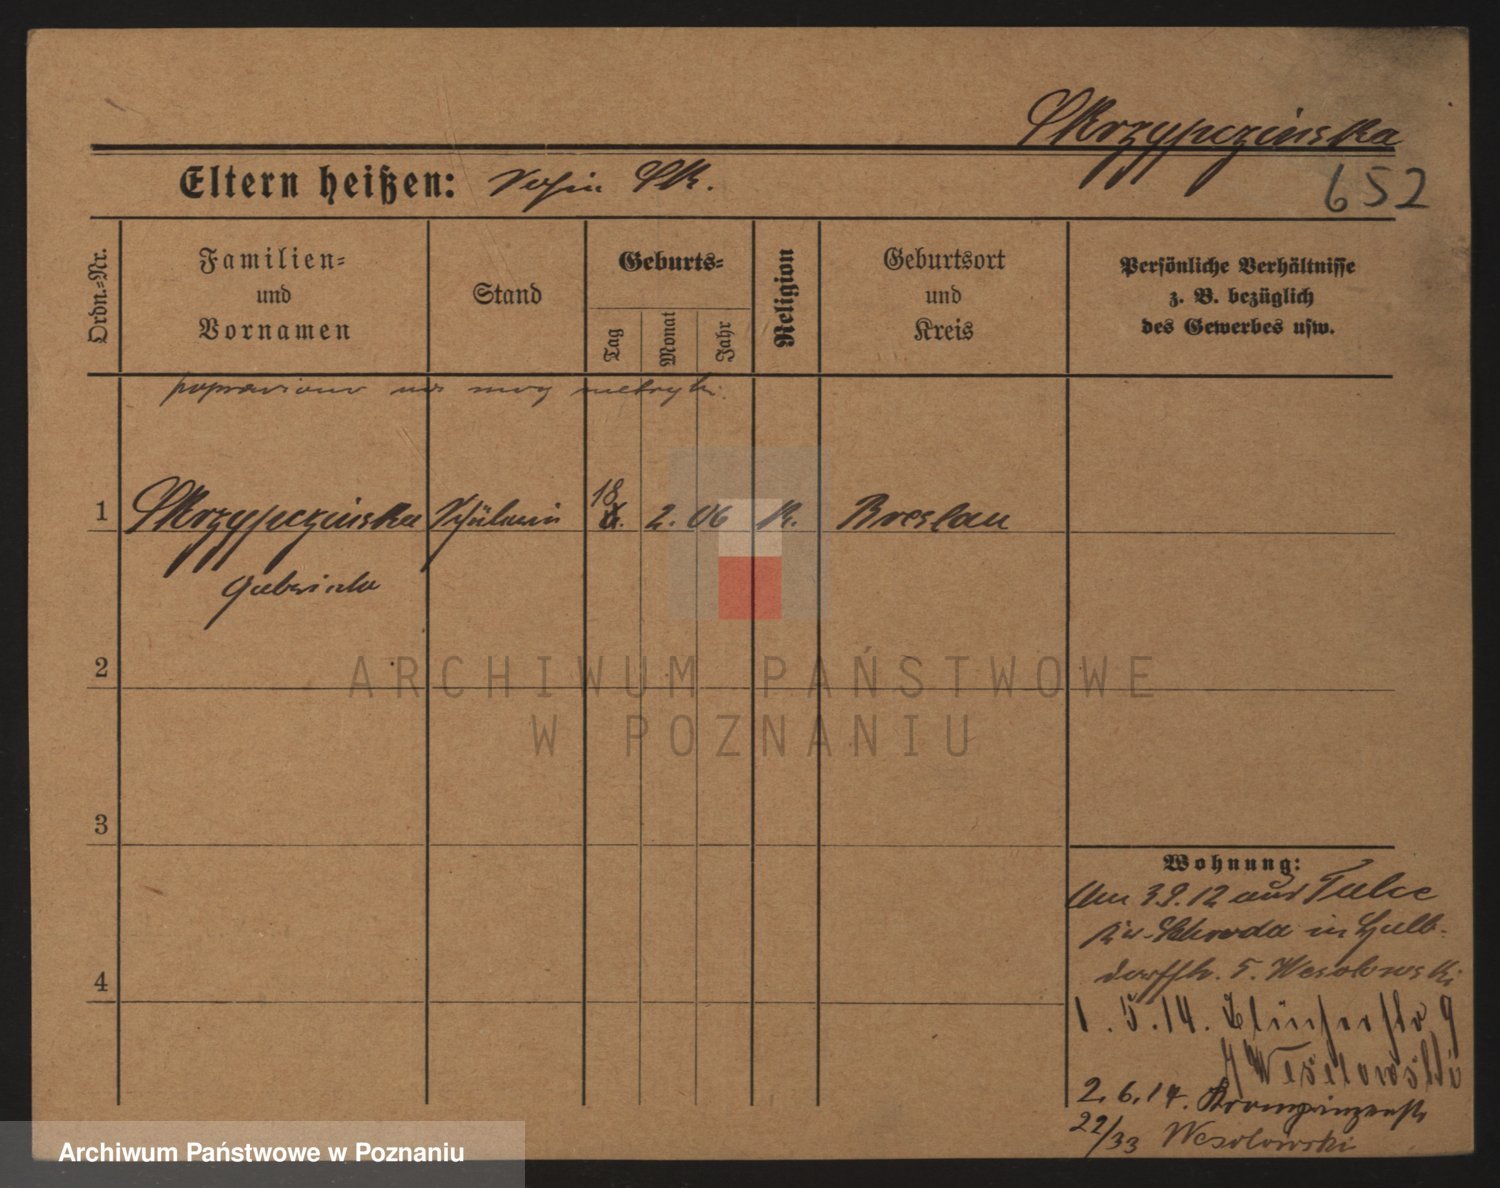 Skrzypczinska
Eltern heißen: Sk.
652
Ordn.-Nr.
Familien-
und
Vornamen
Stand
Geburts-
Tag
Monat
Jahr
Religion
Geburtsort
und
Kreis
Persönliche Verhältnisse
z. B. bezüglich
des Gewerbes usw.
poprawiono metryki.
18
1 Skrzypczinska Schülerin 2. 06 K. Breslau
Gabriela
2
3
4
Wohnung:
Am 3.9.12 aus Tulce
Kr. Schroda in Halb-
dorfstr. 5. Wesolowski
1.5.14. Blücherstr 9
Wesolowski
2.6.14. Kronprinzenstr
22/33 Wesolowski
ARCHIWUM PAŃSTWOWE
W POZNANIU
Archiwum Państwowe w Poznaniu